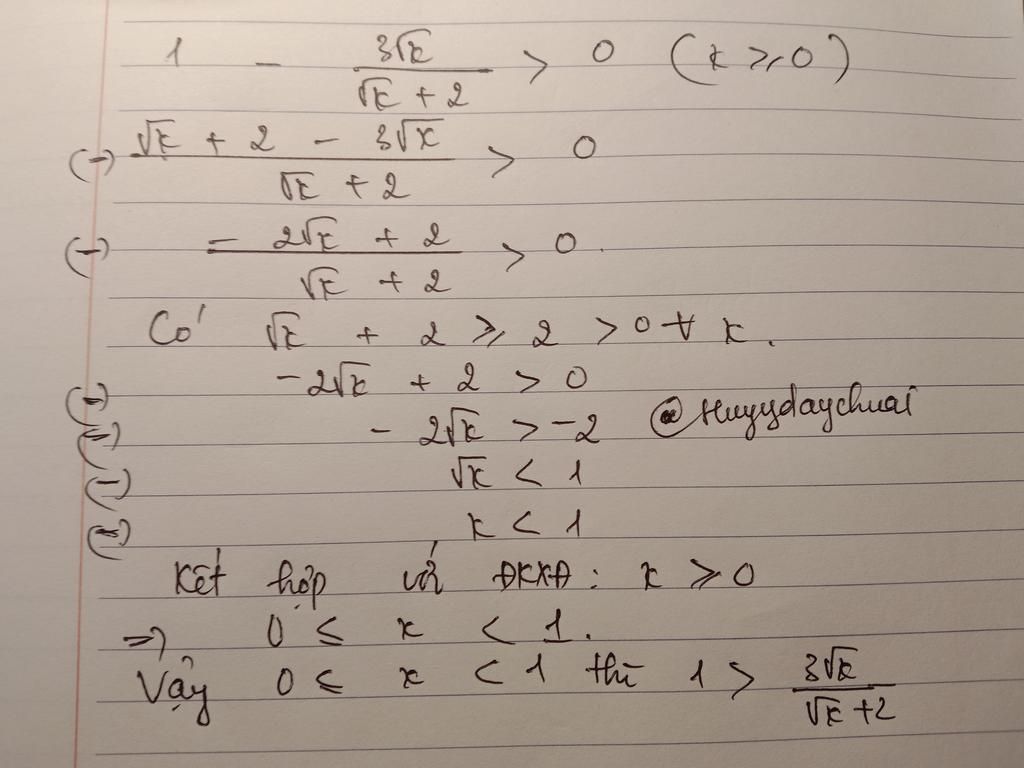 1 - 3√x / (√x + 2) > 0 (x ≥ 0)
(=) (√x + 2 - 3√x) / (√x + 2) > 0
(=) (- 2√x + 2) / (√x + 2) > 0.
Có √x + 2 ≥ 2 > 0 ∀ x.
(=) -2√x + 2 > 0
(=) - 2√x > -2 @Huyydaychuai
(=) √x < 1
(=) x < 1
Kết hợp với ĐKXĐ: x ≥ 0
=> 0 ≤ x < 1.
Vậy 0 ≤ x < 1 thì 1 > 3√x / (√x + 2)